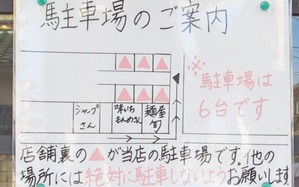 駐車場のご案内
※
駐車場は
6台です
シャープさん
味いちもんめさん
麺屋旬
店舗裏の▲が当店の駐車場です。他の
場所には絶対に駐車しないようお願いします